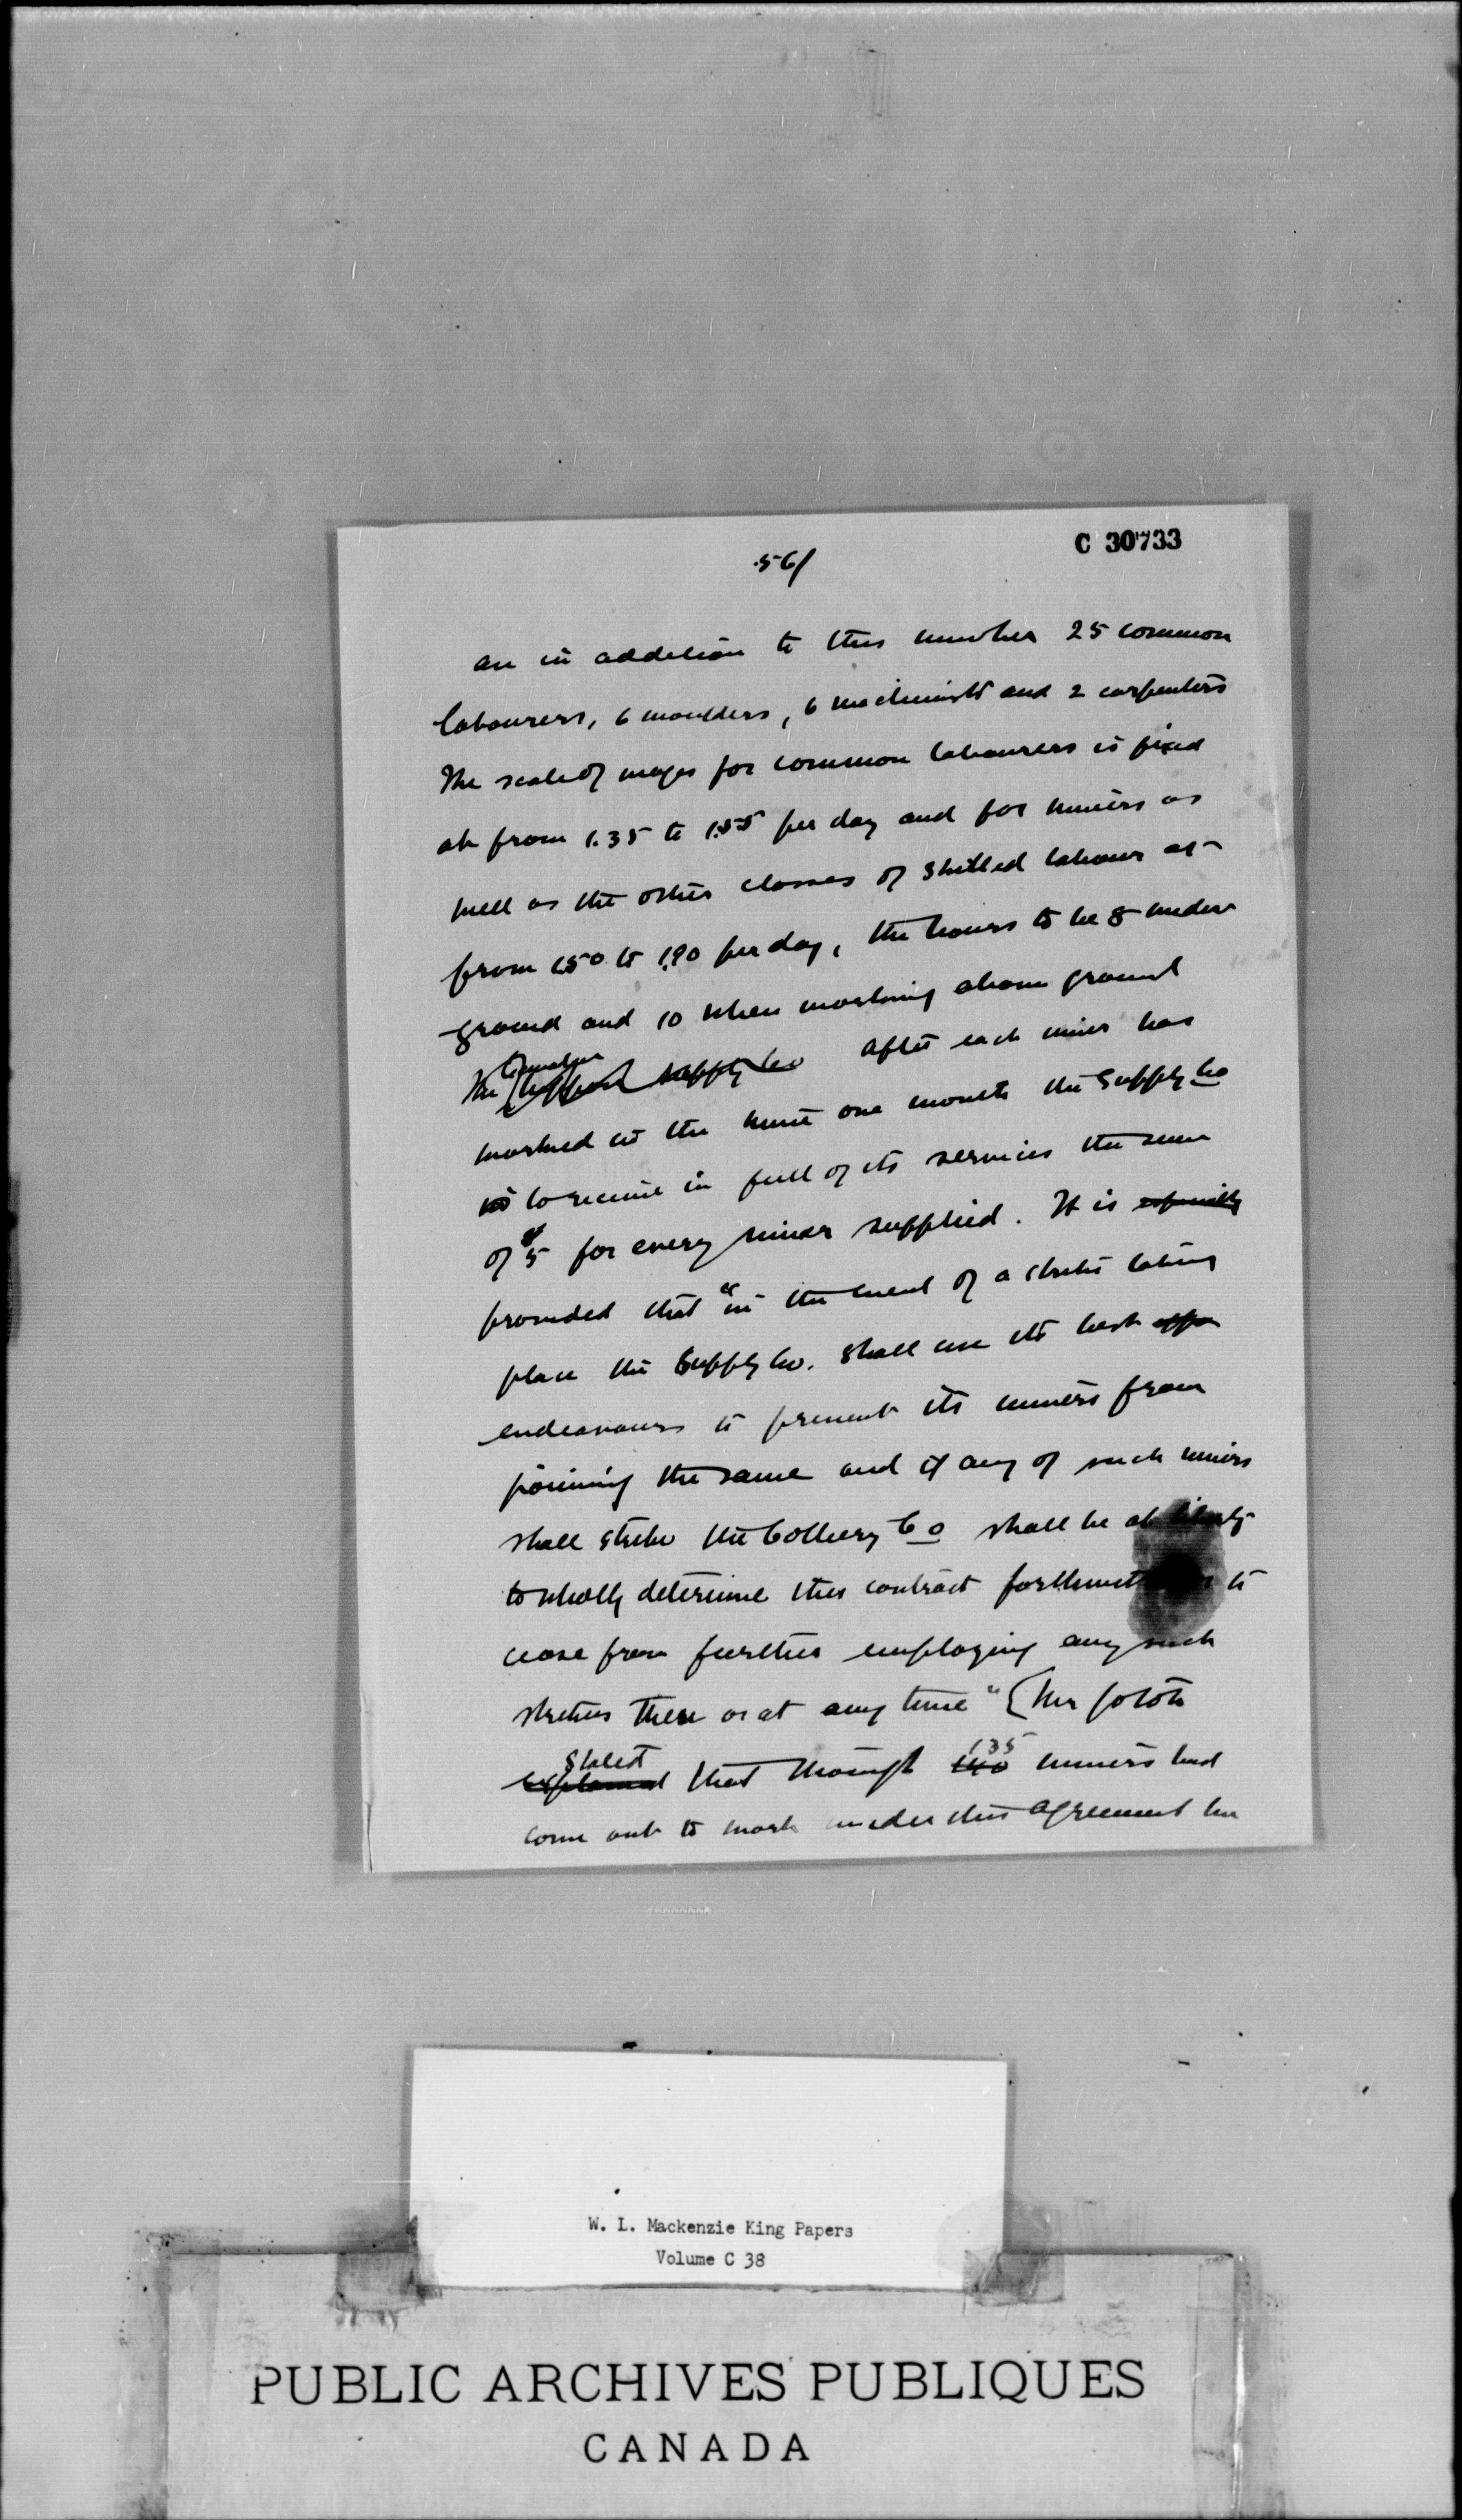 C 30733
56/
are in addition to this number 25 common
labourers, 6 moulders, 6 machinists and 2 carpenters
The scale of wages for common labourers is fixed
at from 1.35 to 1.55 per day and for miners as
well as the other classes of skilled labour at
from 1.50 to 1.90 per day, the hours to be 8 under
ground and 10 when working above ground
The supply Co After each miner has
worked in the mine one month the Supply Co
is to receive in full of its services the sum
of $5 for every miner supplied. It is especially
provided that "in the event of a strike taking
place the Supply Co. shall use its best effo
endeavours to prevent its miners from
joining the same and if any of such miners
shall strike the Colliery Co shall be at liberty
to wholly determine this contract forthwith to
cease from further employing any such
strikers then or at any time" [Mr Gotoh
stated
explained that though 140 135 miners had
come out to work under this agreement he
W. L. Mackenzie King Papers
Volume C 38
PUBLIC ARCHIVES PUBLIQUES
CANADA